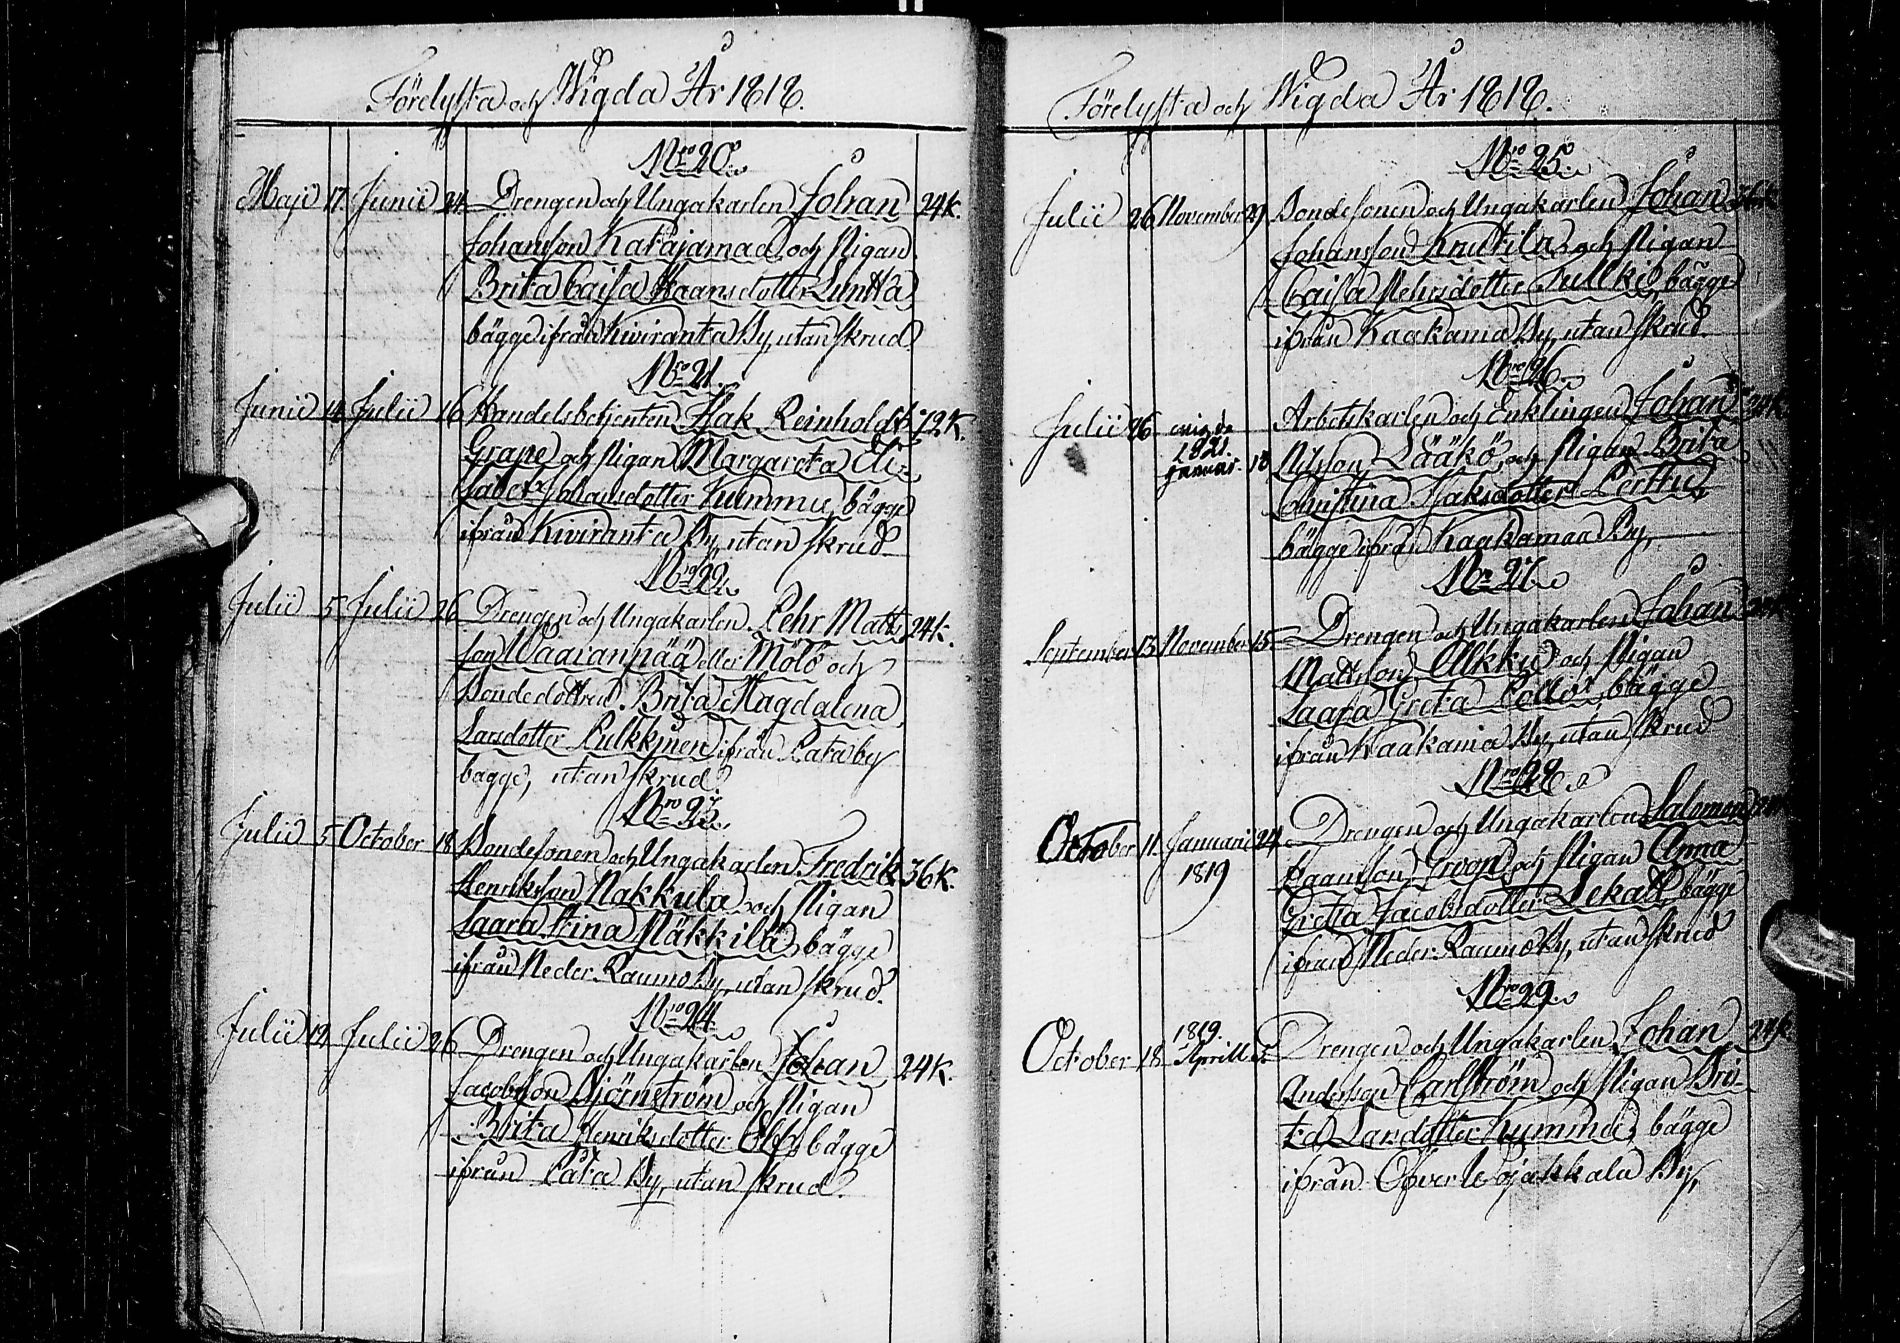 Förelysta och Wigda År 1818.
Nro 20.
Maji 17 Junii 24 Drengen och Ungakarlen Johan 24K.
Johansson Karajamaa och Pigan
Brita Caisa Haansdotter
bägge ifrån Kiviranta By, utan skrud.
Nro 21.
Junii 14 Julii 16 Handelsbetjenten Isak Reinholdt 72K.
Grape och Pigan Margareta Eli-
sabet Johansdotter Kummu, bägge
ifrån Kiviranta By, utan skrud
Nro 22.
Julii 5 Julii 26 Drengen och Ungakarlen Pehr Matts 24K.
son Waaranpää eller Mölö och
Bondedottren Brita Magdalena
Larsdotter Pulkkinen ifrån Rataby
bägge, utan skrud.
Nro 23.
Julii 5 October 18 Bondesonen och Ungakarlen Fredrik 36K.
Henriksson Nakkula och Pigan
Saara Stina Näkkilä, bägge
ifrån Neder Raumo By, utan skrud.
Nro 24.
Julii 12 Julii 26 Drengen och Ungakarlen Johan 24K.
Jacobsson Björnström och Pigan
Brita Henriksdotter bägge
ifrån By, utan skrud.
Förelysta och Wigda År 1818.
Nro 25.
Julii 26 November 29 Bondesonen och Ungakarlen Johan 36K
Johansson Knutila och Pigan
Caisa Pehrsdotter bägge
ifrån Kaakama By, utan skrud.
Nro 26.
Julii 26 Arbetskarlen och Enklingen Johan
1821.
Januar. 18 Nilsson Lääkö, och Pigan Brita
Christina Isaksdotter Perttu
bägge ifrån Kaakamaa By,
Nro 27.
September 13 November 15 Drengen och Ungakarlen Johan
Mattsson Alkku och Pigan
Saara Greta bägge
ifrån Kaakama By, utan skrud
Nro 28.
October 11 Januari 24 Drengen och Ungakarlen Salomon
1819 Haansson och Pigan Anna
Greta Jacobsdotter bägge
ifrån Neder Raumo By, utan skrud
Nro 29.
1819.
October 18 Aprill Drengen och Ungakarlen Johan 24K.
Andersson Carlström och Pigan Bri-
ta Larsdotter Kummu, bägge
ifrån Öfver Wojakkala By,